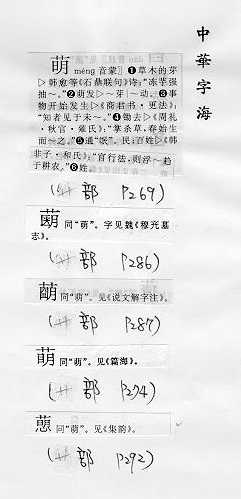 中華字海
萌 méng 音蒙〗❶草木的芽
▷韩愈等《石鼎联句》诗:“冻芋强
抽~。”❷萌发▷~芽|~动。❸事
物开始发生▷《商君书·更法》:
“知者见于未~。”❹锄去▷《周礼
·秋官·薙氏》:“掌杀草,春始生
而~之。”❺通“氓”。民;百姓▷《韩
非子·和氏》:“官行法,则浮~趋
于耕农。”❻姓。
(艹部 P269)
同“萌”。字见魏《穆亮墓
志》。
(艹部 P286)
同“萌”。见《说文解字注》。
(艹部 P287)
同“萌”。见《篇海》。
(艹部 P274)
同“萌”。见《集韵》。
(艹部 P292)